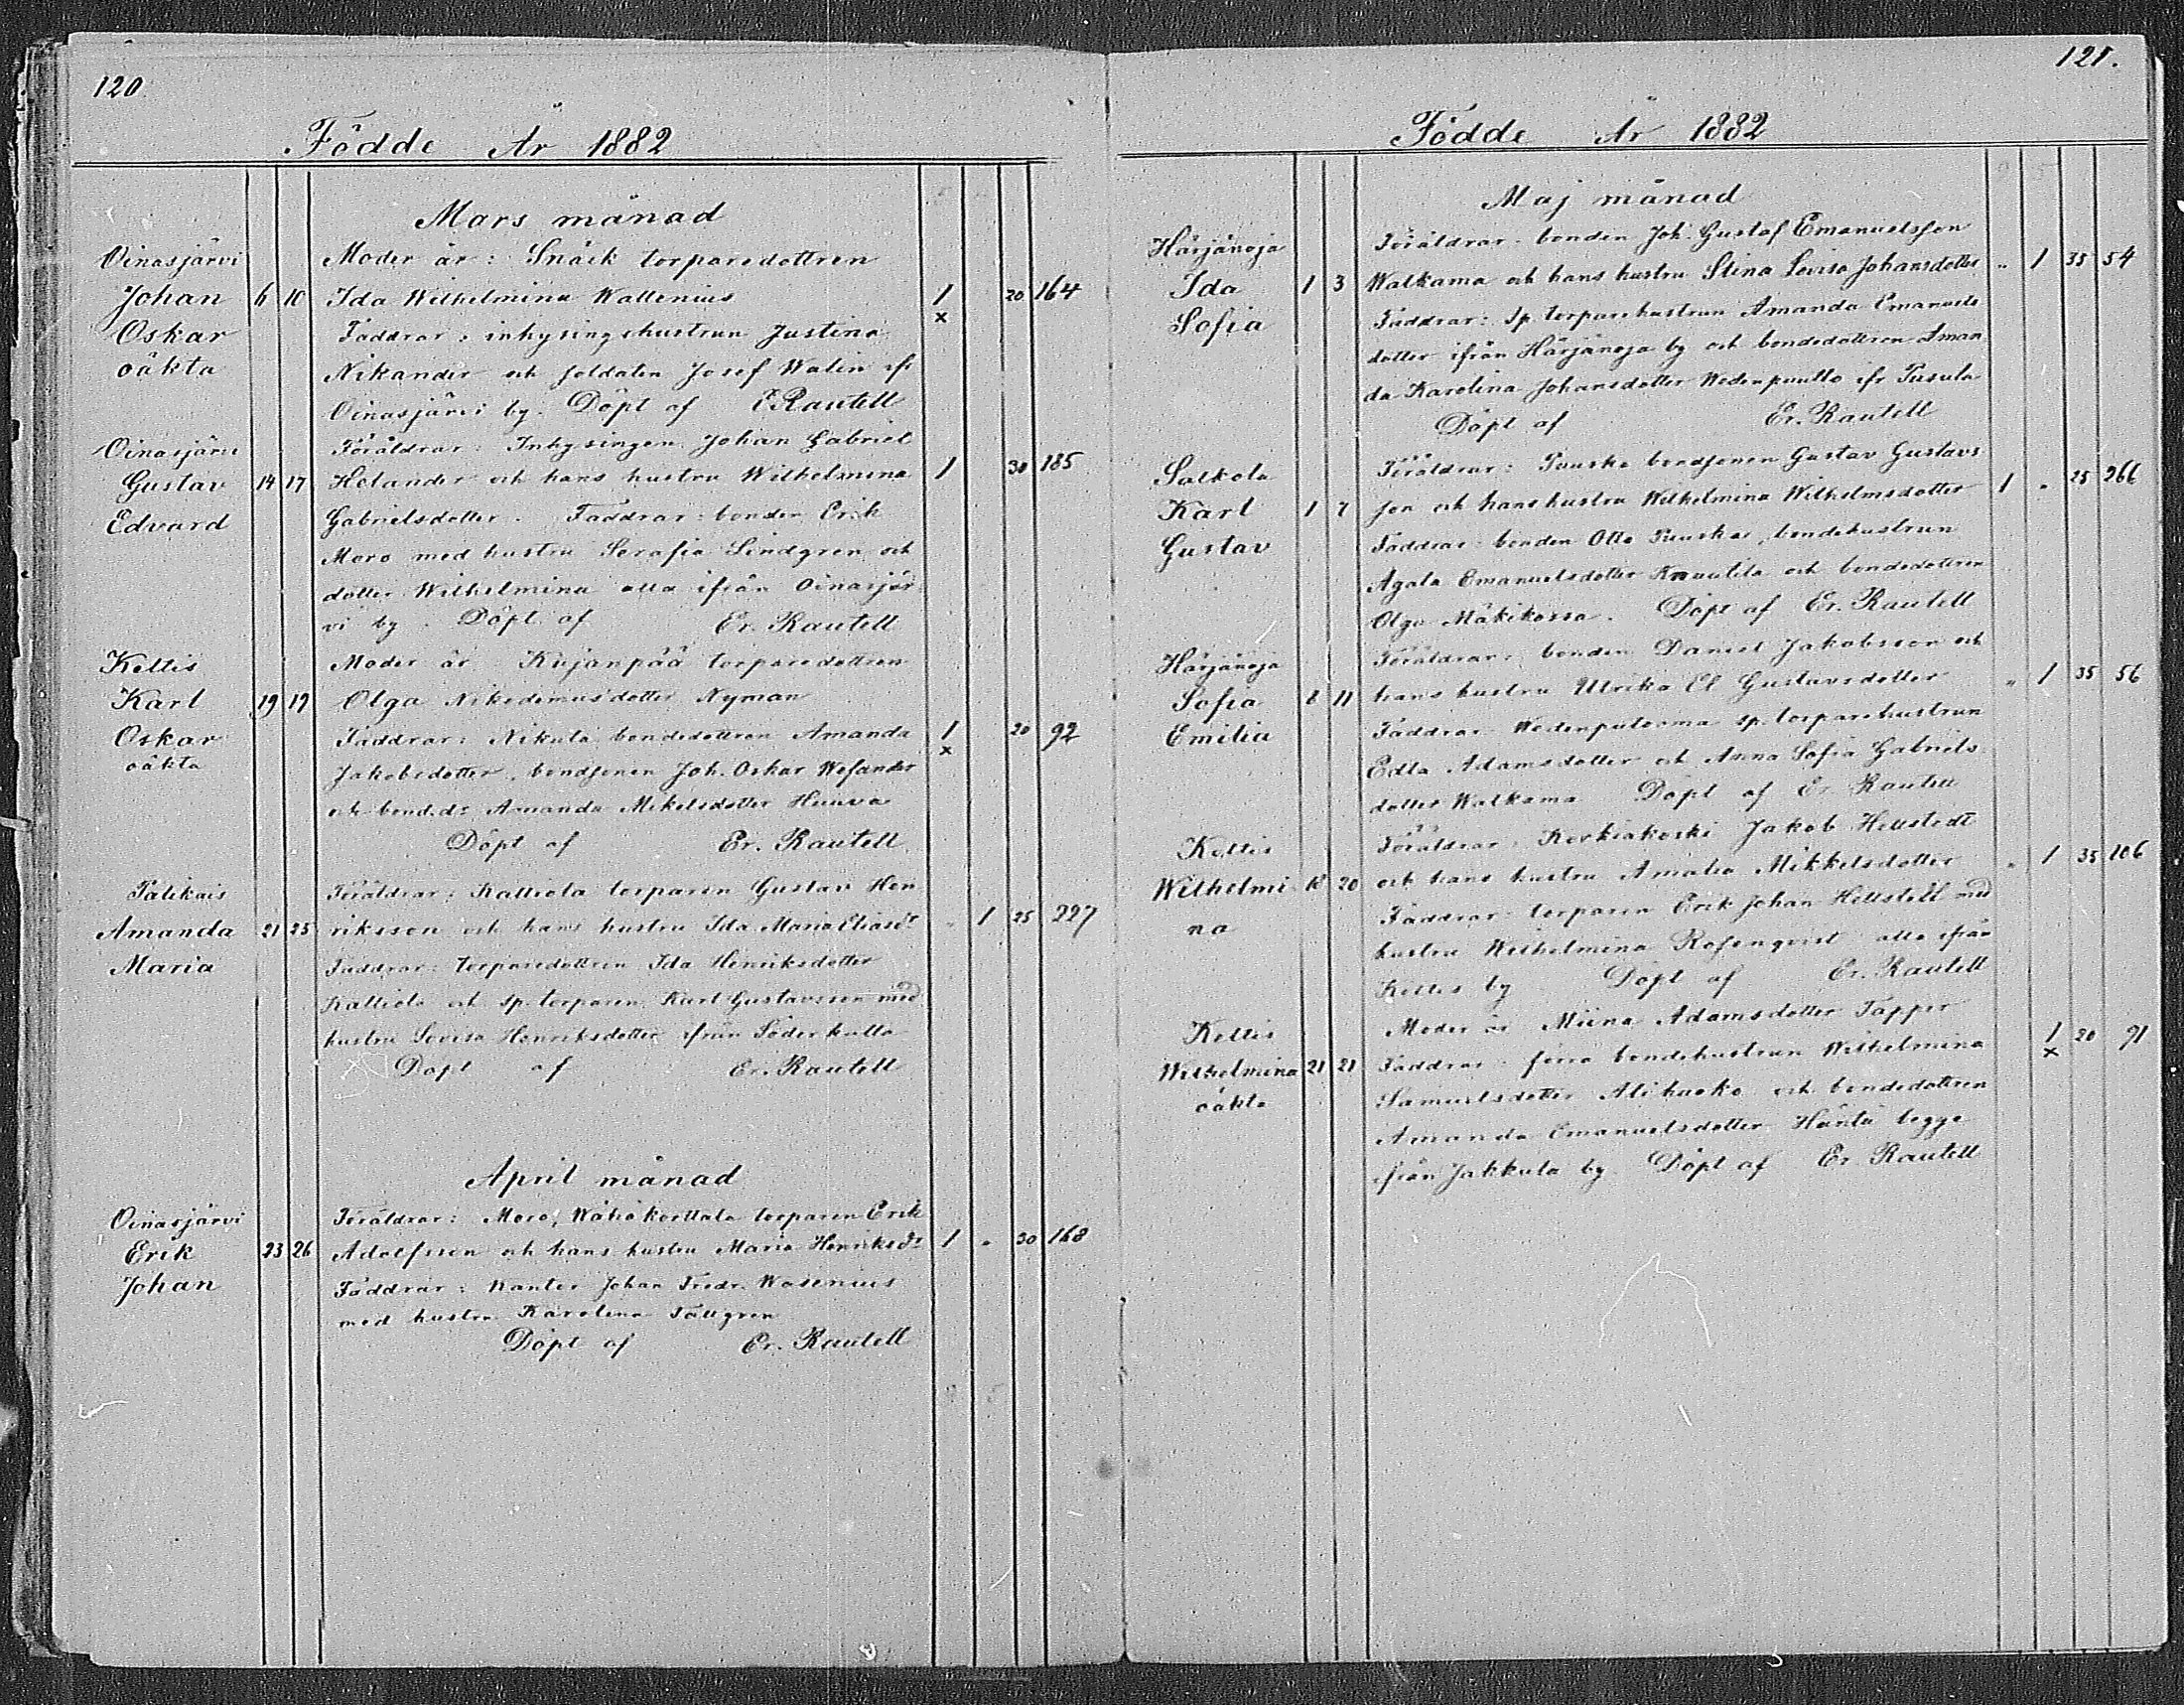 120.
Födde År 1882
Mars månad
Oinasjärvi Moder är: Snäik torparedottren
Johan 6 10 Ida Wilhelmina Wallenius 1 20 164
Oskar Faddrar: inhysingehustrun Justina x
oäkta Nikander och soldaten Josef Walin ifr
Oinasjärvi by. Döpt af E Rautell
Oinasjärvi Föräldrar: Inhysingen Johan Gabriel
Gustav 14 17 Helander och hans hustru Wilhelmina 1 30 185
Edvard Gabrielsdotter. Faddrar: bonden Erik
Moro med hustru Serafia Lindgren och
dotter Wilhelmina alla ifrån Oinasjär
vi by. Döpt af Er. Rautell
Kettis Moder är Kujanpää torparedottren
Karl 19 19 Olga Nikodemusdotter Nyman
Oskar Faddrar: Nikula bondedottren Amanda 1 20 92
oäkta Jakobsdotter, bondsonen Joh. Oskar Wesander x
och bond.d: Amanda Mikelsdotter Hunva
Döpt af Er. Rautell
Palikais Föräldrar: Kalliola torparen Gustav Hen
Amanda 21 25 riksson och hans hustru Ida Maria Eliasdr " 1 25 227
Maria Faddrar: torparedottren Ida Henriksdotter
Kalliola och sp. torparen Karl Gustavsson med
hustru Lovisa Henriksdotter ifrån Söderkulla
Döpt af Er. Rautell
April månad
Oinasjärvi Föräldrar: Moro, Wähäkorttala torparen Erik
Erik 23 26 Adolfsson och hans hustru Maria Henriksdr 1 " 30 168
Johan Faddrar: Kantor Johan Fredr. Wasenius
med hustru Karolina Tallgren
Döpt af Er. Rautell
121.
Födde År 1882
Maj månad
Härjänoja Föräldrar: bonden Joh. Gustaf Emanuelsson
Ida 1 3 Walkama och hans hustru Stina Lovisa Johansdotter " 1 35 54
Sofia Faddrar: Sp. torparehustrun Amanda Emanuels
dotter ifrån Härjänoja by och bondedottren Aman
da Karolina Johansdotter Wedenpuulto ifr Pusula
Döpt af Er. Rautell
Salkola Föräldrar: Puuska bondsonen Gustav Gustavs
Karl 1 7 son och hans hustru Wilhelmina Wilhelmsdotter 1 " 25 266
Gustav Faddrar: bonden Otto Puuska, bondehustrun
Agata Emanuelsdotter Knuutila och bondedottren
Olga Mäkikossa. Döpt af Er. Rautell
Härjänoja Föräldrar: bonden Daniel Jakobsson och
Sofia 8 11 hans hustru Ulrika El Gustavsdotter " 1 35 56
Emilia Faddrar: sp. torparehustrun
Edla Adamsdotter och Anna Sofia Gabriels
dotter Walkama Döpt af Er. Rautell
Kettis Föräldrar: Korkiakoski Jakob Hellstedt
Wilhelmi 18 20 och hans hustru Amalia Mikkelsdotter " 1 35 106
na Faddrar: torparen Erik Johan Hellstedt med
hustru Wilhelmina Rosenqvist alla ifrån
Kettis by Döpt af Er. Rautell
Kettis Moder är Miina Adamsdotter Tapper
Wilhelmina 21 21 Faddrar: förra bondehustrun Wilhelmina 1 20 91
oäkta Samuelsdotter Alihaoko och bondedottren x
Amanda Emanuelsdotter Häntä begge
ifrån Jakkula by Döpt af Er. Rautell